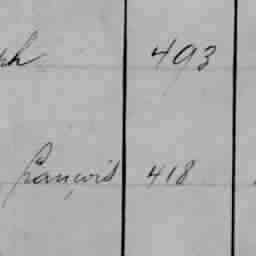 ph 493
françois 418